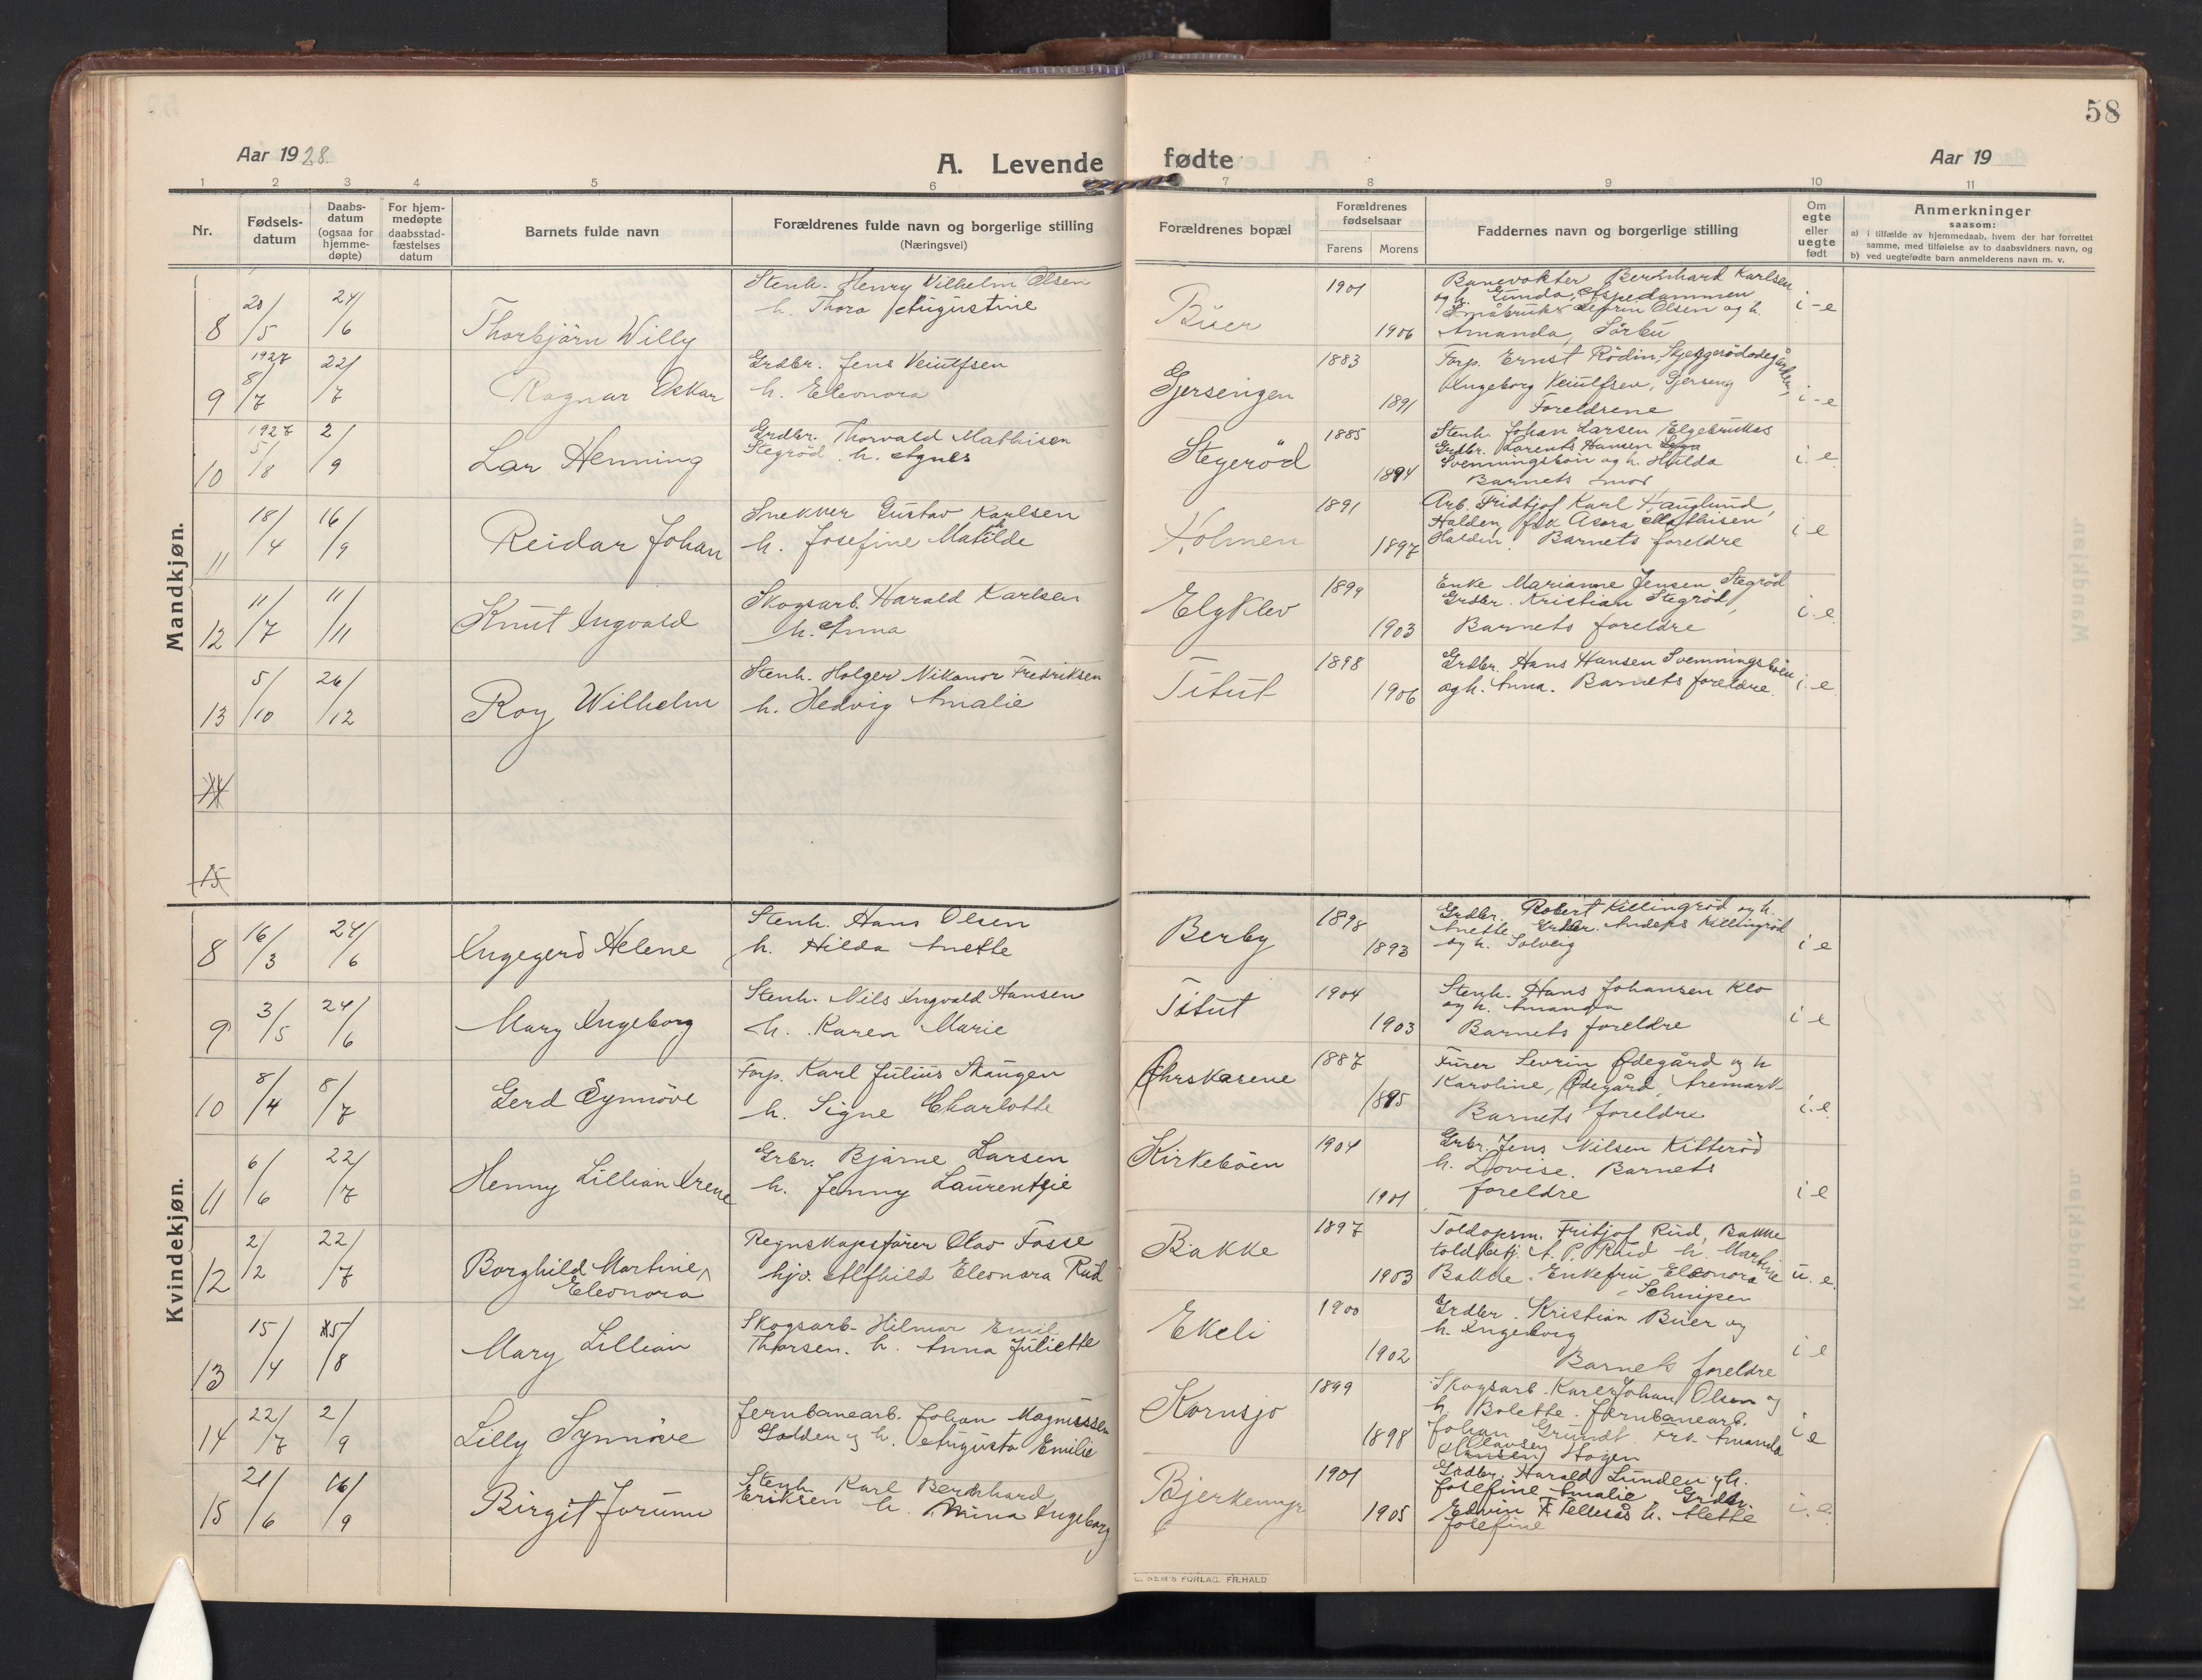 58
Aar 1928.
A. Levende
fødte
Aar 19
1 2 3 4 5 6 7 8 9 10 11
Nr.
Fødsels-
datum
Daabs-
datum
(ogsaa for
hjemme-
døpte)
For hjem-
medøpte
daabsstad-
fæstelses
datum
Barnets fulde navn
Forældrenes fulde navn og borgerlige stilling
(Næringsvei)
Forældrenes bopæl
Forældrenes
fødselsaar
Farens Morens
Faddernes navn og borgerlige stilling
Om
egte
eller
uegte
født
Anmerkninger
saasom:
a) i tilfælde av hjemmedaab, hvem der har forrettet
samme, med tilføielse av to daabsvidners navn, og
b) ved uegtefødte barn anmelderens navn m. v.
Mandkjøn.
8 20/5 24/6 Thorbjörn Willy
Stenh. Henry Vilhelm Olsen
h. Thora Augustine
Büer 1901 1906
Banevokter Bernhard Karlsen
og h. Gunda, Aspedammen
Småbruker Sefrin Olsen og h.
Amanda, Sörbu
i-e
9 1927 8/7 22/7 Ragnar Oskar
Grdbr. Jens Veiulfsen
h. Eleonora
Gjersengen 1883 1891
Forp. Ernst Rödin, Skjeggerödødegården,
Ingeborg Veiulfsen, Gjerseng
Foreldrene
i-e
10 1927 5/8 2/9 Lar Henning
Grdbr. Thorvald Mathisen
Stegröd. h. Agnes
Stegeröd 1885 1894
Stenh. Johan Larsen Elgebrukas
Grdbr. Lorents Hansen
Svenningsböin og h. Hulda
Barnets mor
i. e.
11 18/4 16/9 Reidar Johan
Snekker Gustav Karlsen
h. Josefine Mathilde
Holmen 1891 1897
Arb. Fridtjof Karl Hauglund,
Halden, frk Asora Mathisen
Halden. Barnets foreldre
i e
12 11/7 11/11 Knut Ingvald
Skogsarb. Harald Karlsen
h. Anna
Elgklev 1899 1903
Enke Marianne Jensen Stegröd
Grdbr. Kristian Stegröd,
Barnets foreldre
i. e.
13 5/10 26/12 Roy Wilhelm
Stenh. Holger Nikanor Fredriksen
h. Hedvig Amalie
Titut 1898 1906
Grdbr. Hans Hansen Svenningsböen
og h. Anna. Barnets foreldre.
i. e.
14
15
Kvindekjøn.
8 16/3 24/6 Ingegerd Helene
Stenh. Hans Olsen
h. Hilda Anette
Berby 1898 1893
Grdbr. Robert Killingröd og h.
Anette. Grdbr. Anders Killingröd
og h. Solveig
i e
9 3/5 24/6 Mary Ingeborg
Stenh. Nils Ingvald Hansen
h. Karen Marie
Titut 1904 1903
Stenh. Hans Johansen Klo
og h. Amanda
Barnets foreldre
i e
10 8/4 8/7 Gerd Synnöve
Forp. Karl Julius Skaugen
h. Signe Charlotte
Øhrskasene 1887 1895
Furer Sevrin Ødegård og h
Karoline, Ødegård, Aremark
Barnets foreldre
i. e.
11 6/6 22/7 Henny Lillian Irene
Grbr. Bjarne Larsen
h. Jenny Laurentsie
Kirkeböen 1904 1901
Grbr. Jens Nilsen Kitteröd
h. Lovise. Barnets
foreldre
i e
12 2/2 22/7 Borghild Martine
Eleonora
Regnskapsförer Olav Fosse
hjv. Alfhild Eleonora Rud
Bakke 1897 1903
Toldopsm. Fritjof Rud, Bakke
toldbetj. A. P. Rud h. Martine
Bakke. Enkefru Eleonora
u. e.
13 15/4 15/8 Mary Lillian
Skogsarb. Hilmar Emil
Thorsen. h. Anna Juliette
Ekeli 1900 1902
Grdbr. Kristian Büer og
h. Ingeborg
Barnets foreldre
i e
14 22/7 2/9 Lilly Synnöve
Jernbanearb. Johan Magnussen
Galden og h. Augusta Emilie
Kornsjø 1899 1898
Skogsarb. Karer Johan Olsen og
h. Bolette. Jernbanearb.
Johan Grundt. Frk. Amanda
Olavsen
Hansen, Hogen
i e
15 21/6 16/9 Birgit Jorunn
Stenh. Karl Bernhard
Eriksen h. Mina Ingeborg
Bjerkemyr 1901 1905
Grdbr. Harald Lunden og h.
Josefine Amalie Grdbr.
Edvin F. Tellesås h. Alette
Josefine
i. e.
E. SEM'S FORLAG. FR.HALD